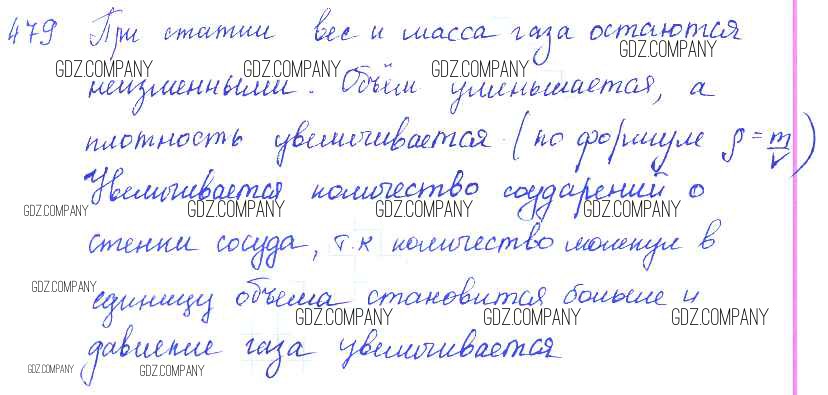 479 При статии вес и масса газа остаются
GDZ.COMPANY
GDZ.COMPANY GDZ.COMPANY GDZ.COMPANY
неизменными. Объём уменьшается, а
плотность увеличивается (по формуле ρ = m/V)
Увеличивается количество соударений о
GDZ.COMPANY GDZ.COMPANY GDZ.COMPANY GDZ.COMPANY
стенки сосуда, т.к количество молекул в
GDZ.COMPANY
единицу объема становится больше и
GDZ.COMPANY GDZ.COMPANY GDZ.COMPANY
давление газа увеличивается
GDZ.COMPANY GDZ.COMPANY